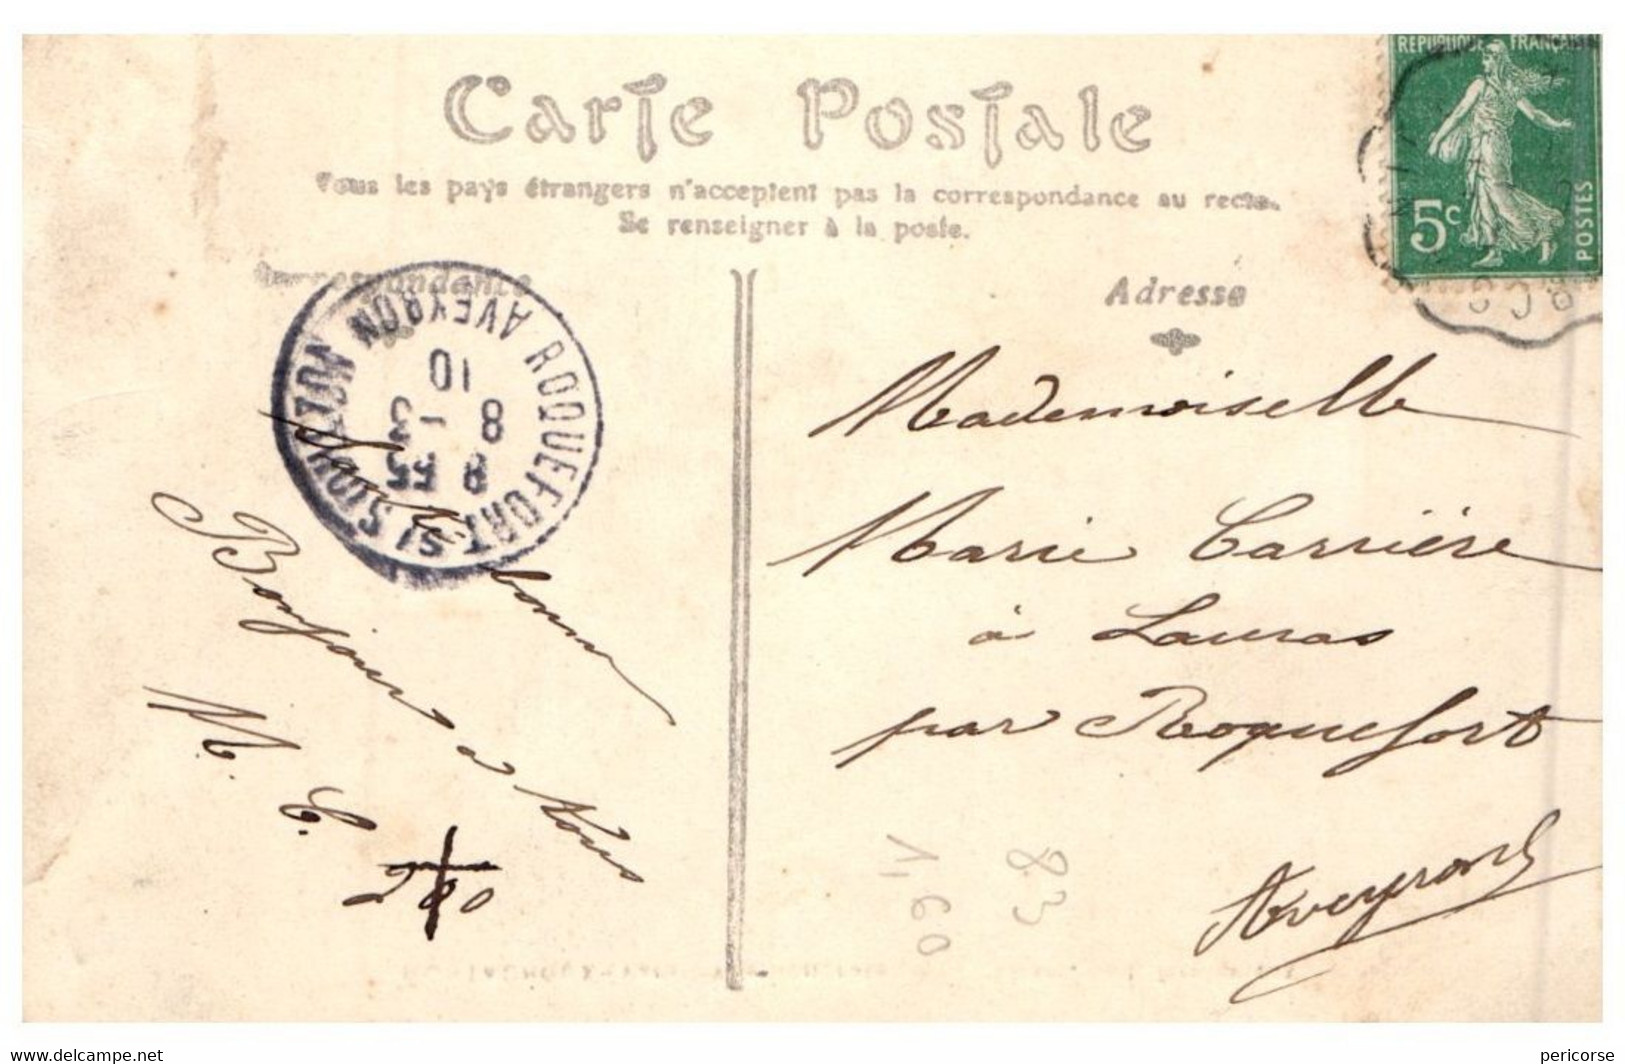 Carte Postale
Tous les pays étrangers n'acceptent pas la correspondance au recto.
Se renseigner à la poste.
Correspondance
Adresse
REPUBLIQUE FRANÇAISE
5c
POSTES
ROQUEFORT-S/-SOULZON
AVEYRON
8 35
8 -3
10
Mademoiselle
Marie Carrière
à Lauras
par Roquefort
Aveyron
Bonjour à tous
M. C.
83
1,60
www.delcampe.net
pericorse